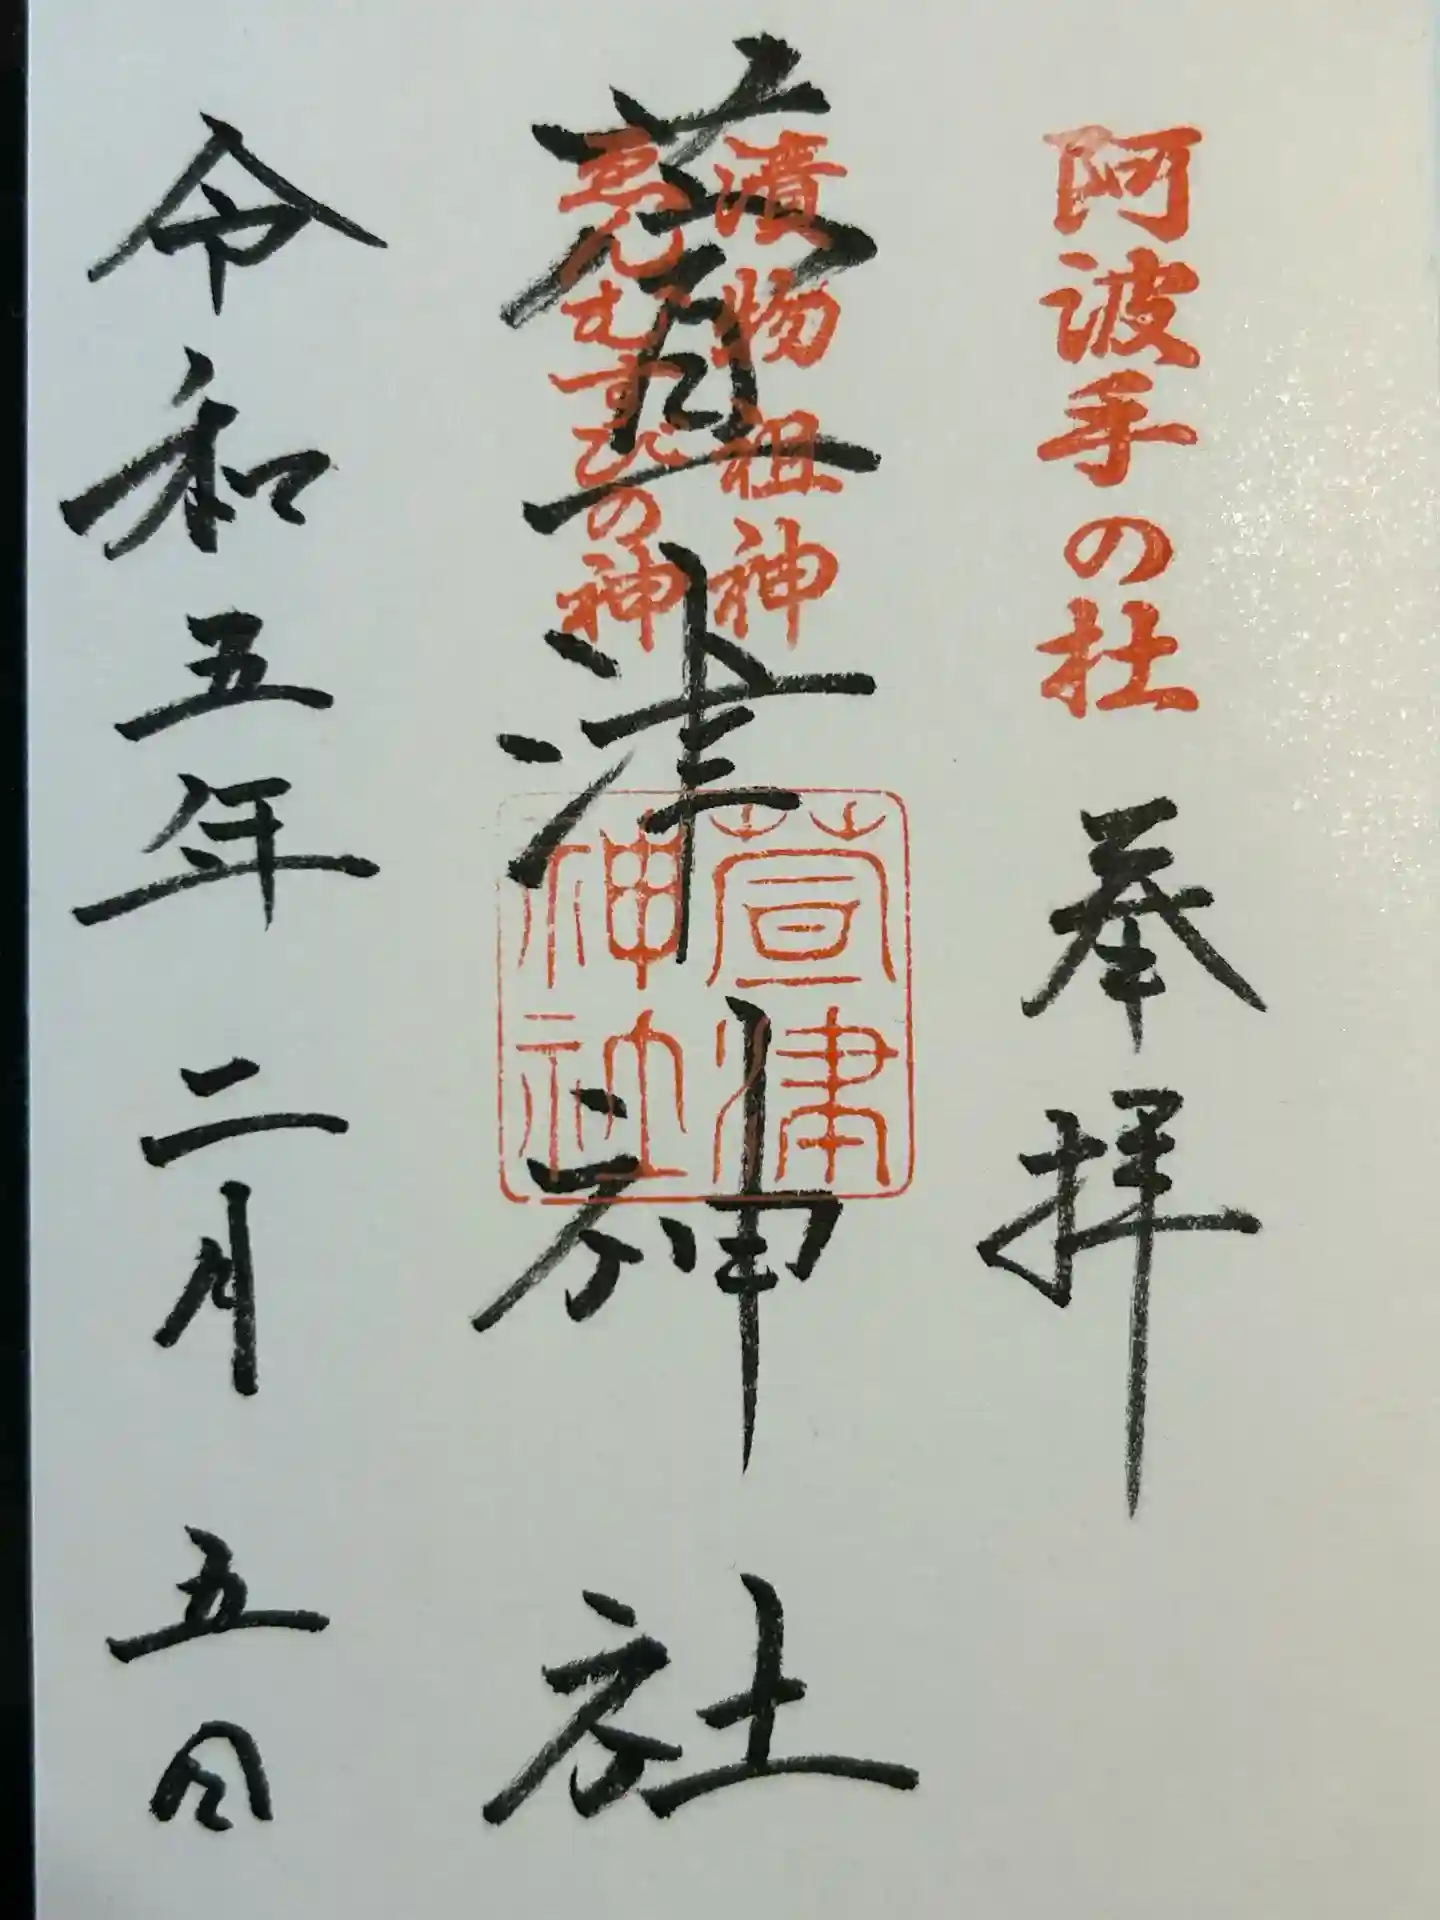 阿波手の杜
奉拝
漬物祖神
ゑんむすびの神
萱津神社
萱津神社
令和五年二月五日